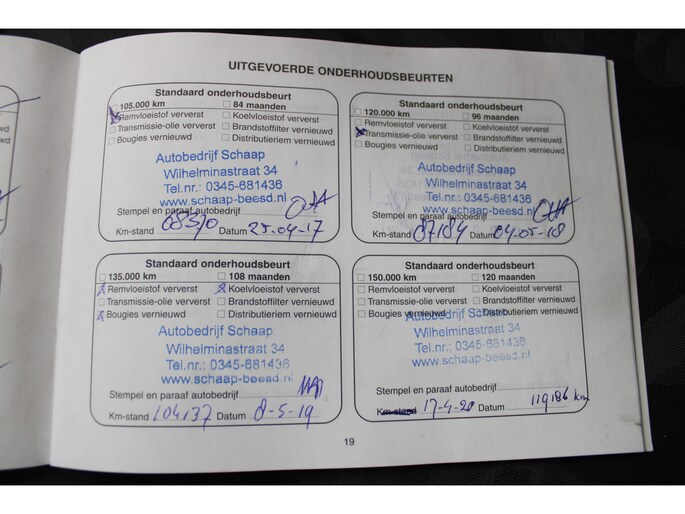 UITGEVOERDE ONDERHOUDSBEURTEN
Standaard onderhoudsbeurt
105.000 km 84 maanden
Remvloeistof ververst Koelvloeistof ververst
Transmissie-olie ververst Brandstoffilter vernieuwd
Bougies vernieuwd Distributieriem vernieuwd
Autobedrijf Schaap
Wilhelminastraat 34
Tel.nr.: 0345-681436
www.schaap-beesd.nl
Stempel en paraaf autobedrijf
Km-stand Datum 25-04-17
Standaard onderhoudsbeurt
120.000 km 96 maanden
Remvloeistof ververst Koelvloeistof ververst
Transmissie-olie ververst Brandstoffilter vernieuwd
Bougies vernieuwd Distributieriem vernieuwd
Autobedrijf Schaap
Wilhelminastraat 34
Tel.nr.: 0345-681436
www.schaap-beesd.nl
Stempel en paraaf autobedrijf
Km-stand 87184 Datum 04-05-18
Standaard onderhoudsbeurt
135.000 km 108 maanden
Remvloeistof ververst Koelvloeistof ververst
Transmissie-olie ververst Brandstoffilter vernieuwd
Bougies vernieuwd Distributieriem vernieuwd
Autobedrijf Schaap
Wilhelminastraat 34
Tel.nr.: 0345-681436
www.schaap-beesd.nl
Stempel en paraaf autobedrijf
Km-stand 104137 Datum 8-5-19
Standaard onderhoudsbeurt
150.000 km 120 maanden
Remvloeistof ververst Koelvloeistof ververst
Transmissie-olie ververst Brandstoffilter vernieuwd
Bougies vernieuwd Distributieriem vernieuwd
Autobedrijf Schaap
Wilhelminastraat 34
Tel.nr.: 0345-681436
www.schaap-beesd.nl
Stempel en paraaf autobedrijf
Km-stand 17-4-20 Datum 119186 km
19